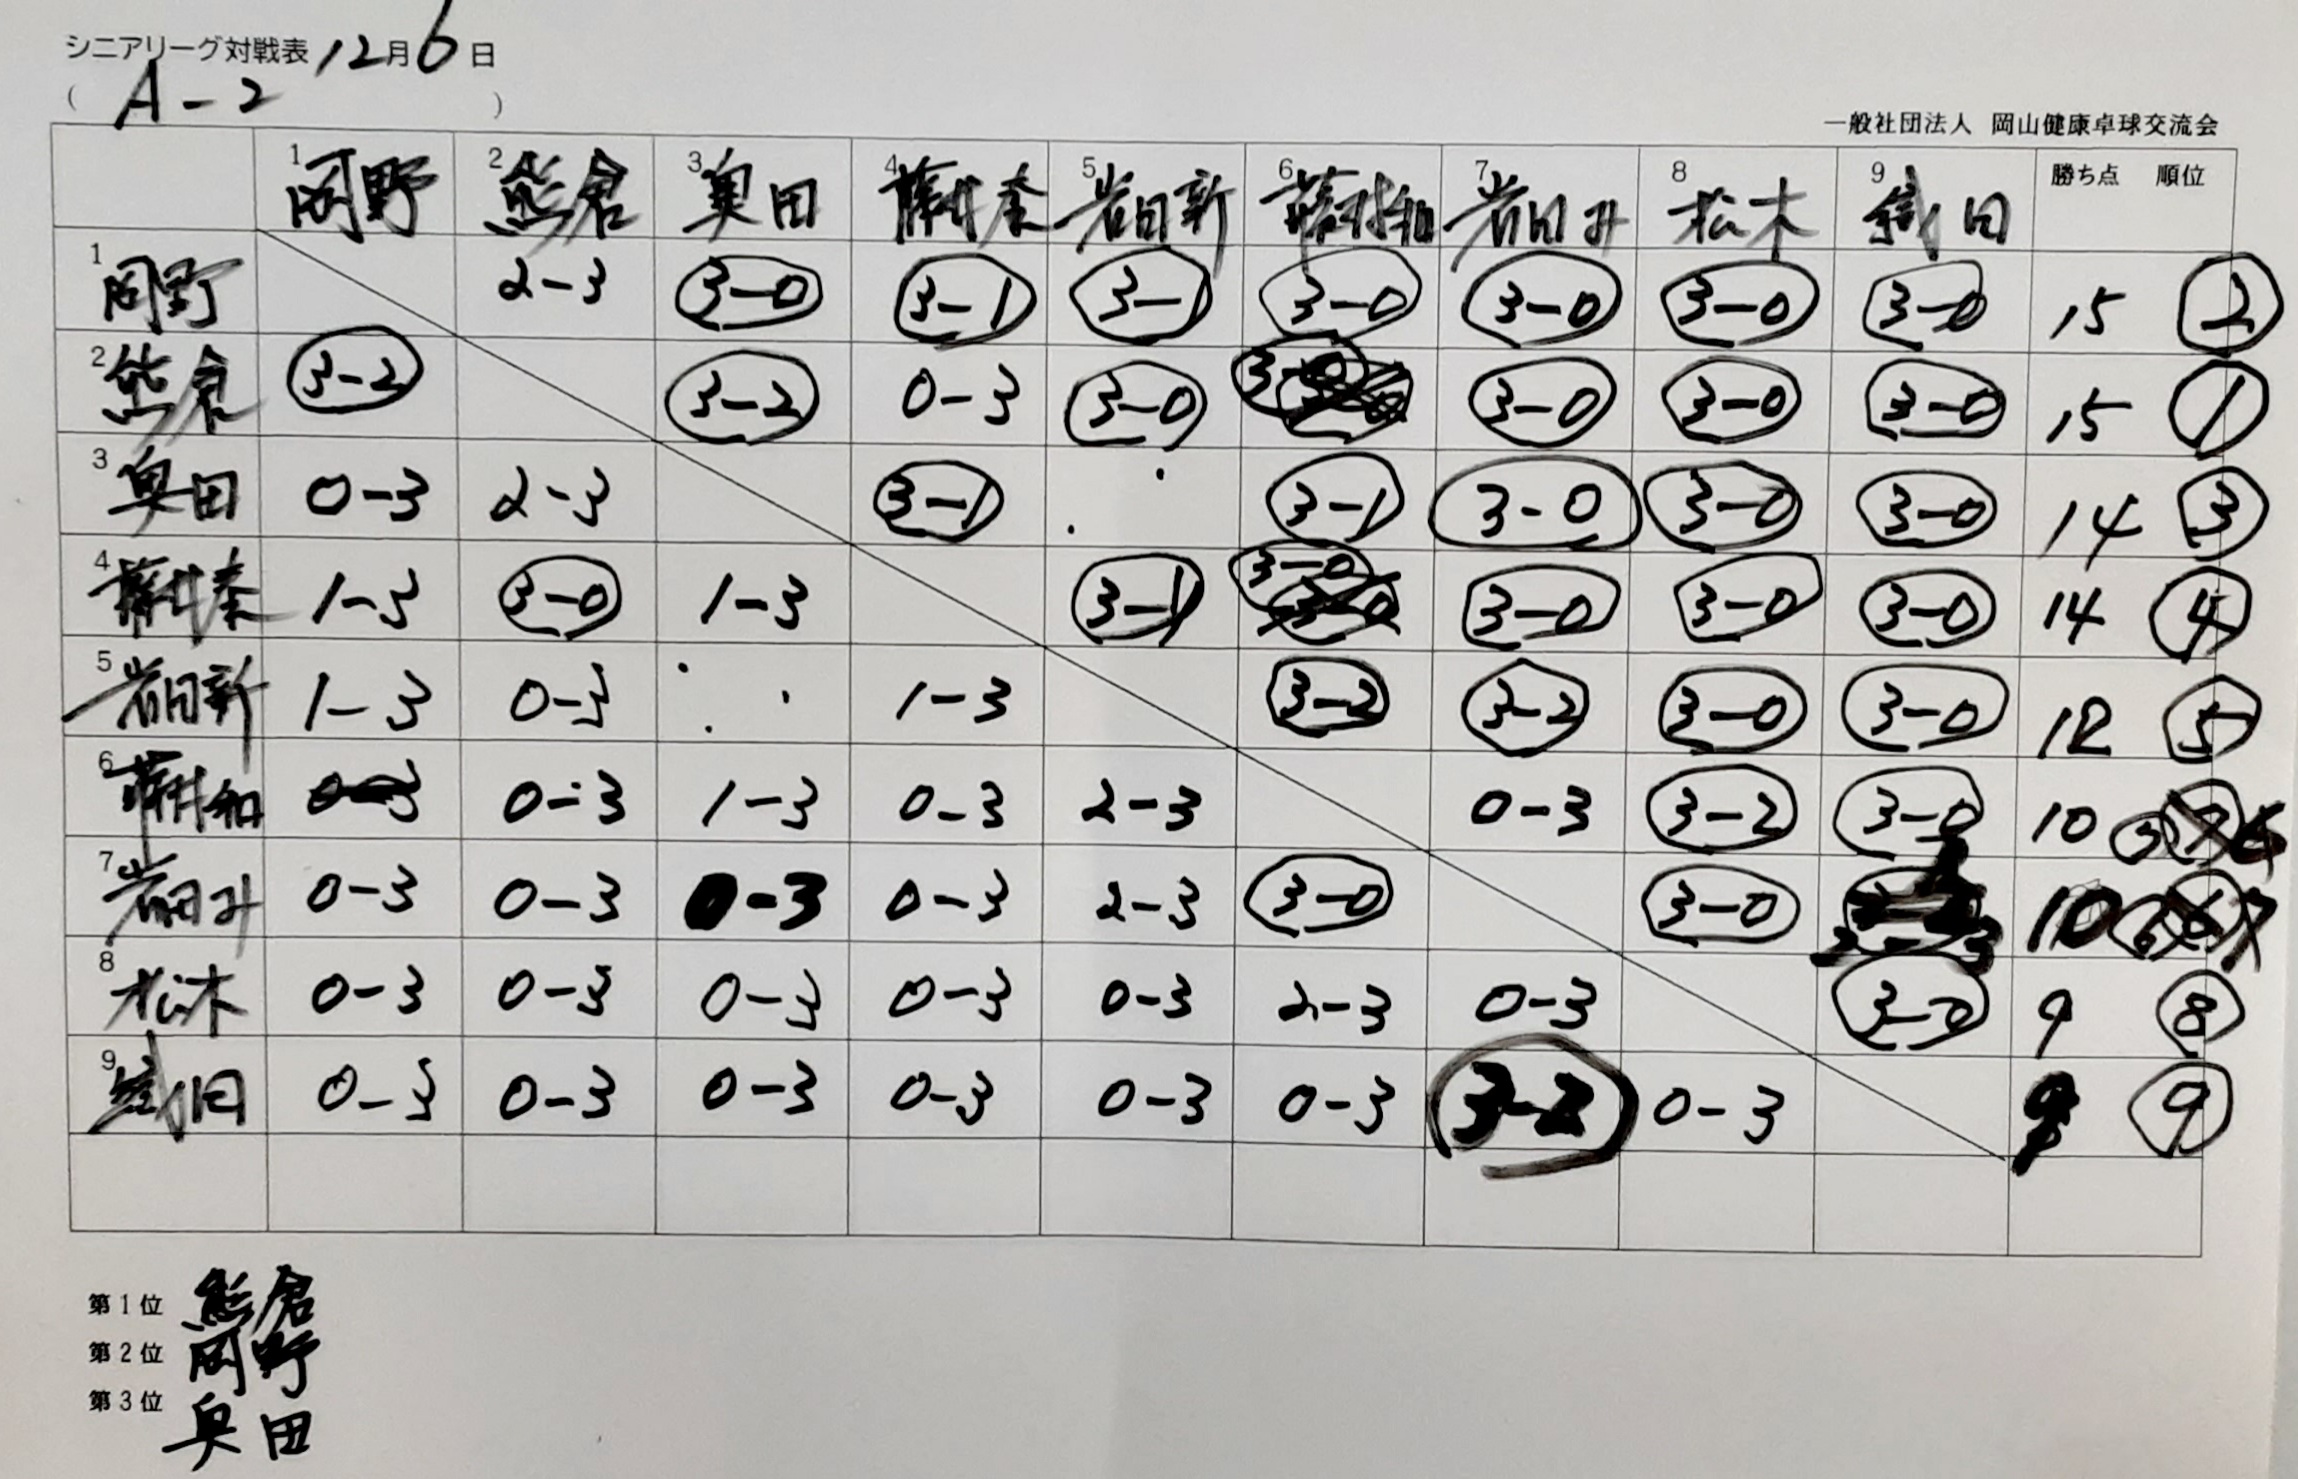 シニアリーグ対戦表 12月6日
( A-2 )
一般社団法人 岡山健康卓球交流会
1 岡野 2 熊倉 3 奥田 4 藤井奏 5 岩田新 6 藤井和 7 岩田み 8 松木 9 田 勝ち点 順位
1 岡野 2-3 3-0 3-1 3-1 3-0 3-0 3-0 3-0 15 2
2 熊倉 3-2 3-2 0-3 3-0 3-0 3-0 3-0 3-0 15 1
3 奥田 0-3 2-3 3-1 3-1 3-0 3-0 3-0 14 3
4 藤井奏 1-3 3-0 1-3 3-1 3-0 3-0 3-0 3-0 14 4
5 岩田新 1-3 0-3 1-3 3-2 3-2 3-0 3-0 12 5
6 藤井和 0-3 0-3 1-3 0-3 2-3 0-3 3-2 3-0 10
7 岩田み 0-3 0-3 0-3 0-3 2-3 3-0 3-0 10
8 松木 0-3 0-3 0-3 0-3 0-3 2-3 0-3 3-0 9 8
9 田 0-3 0-3 0-3 0-3 0-3 0-3 3-2 0-3 9
第1位 熊倉
第2位 岡野
第3位 奥田